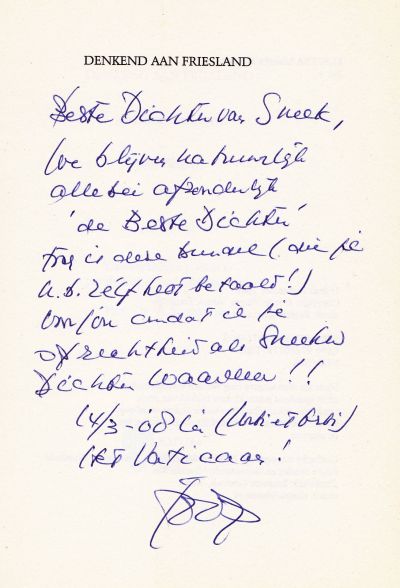 DENKEND AAN FRIESLAND
Beste Dichter van Sneek,
We blijven natuurlijk
allebei afzonderlijk
'de Beste Dichter'
is deze bundel (die je
n.b. zélf hebt betaald!)
omdat ik je
oprechtheid als Sneeker
Dichter waardeer!!
14/3-'08 in (Urbi et Orbi)
Het Vaticaan!